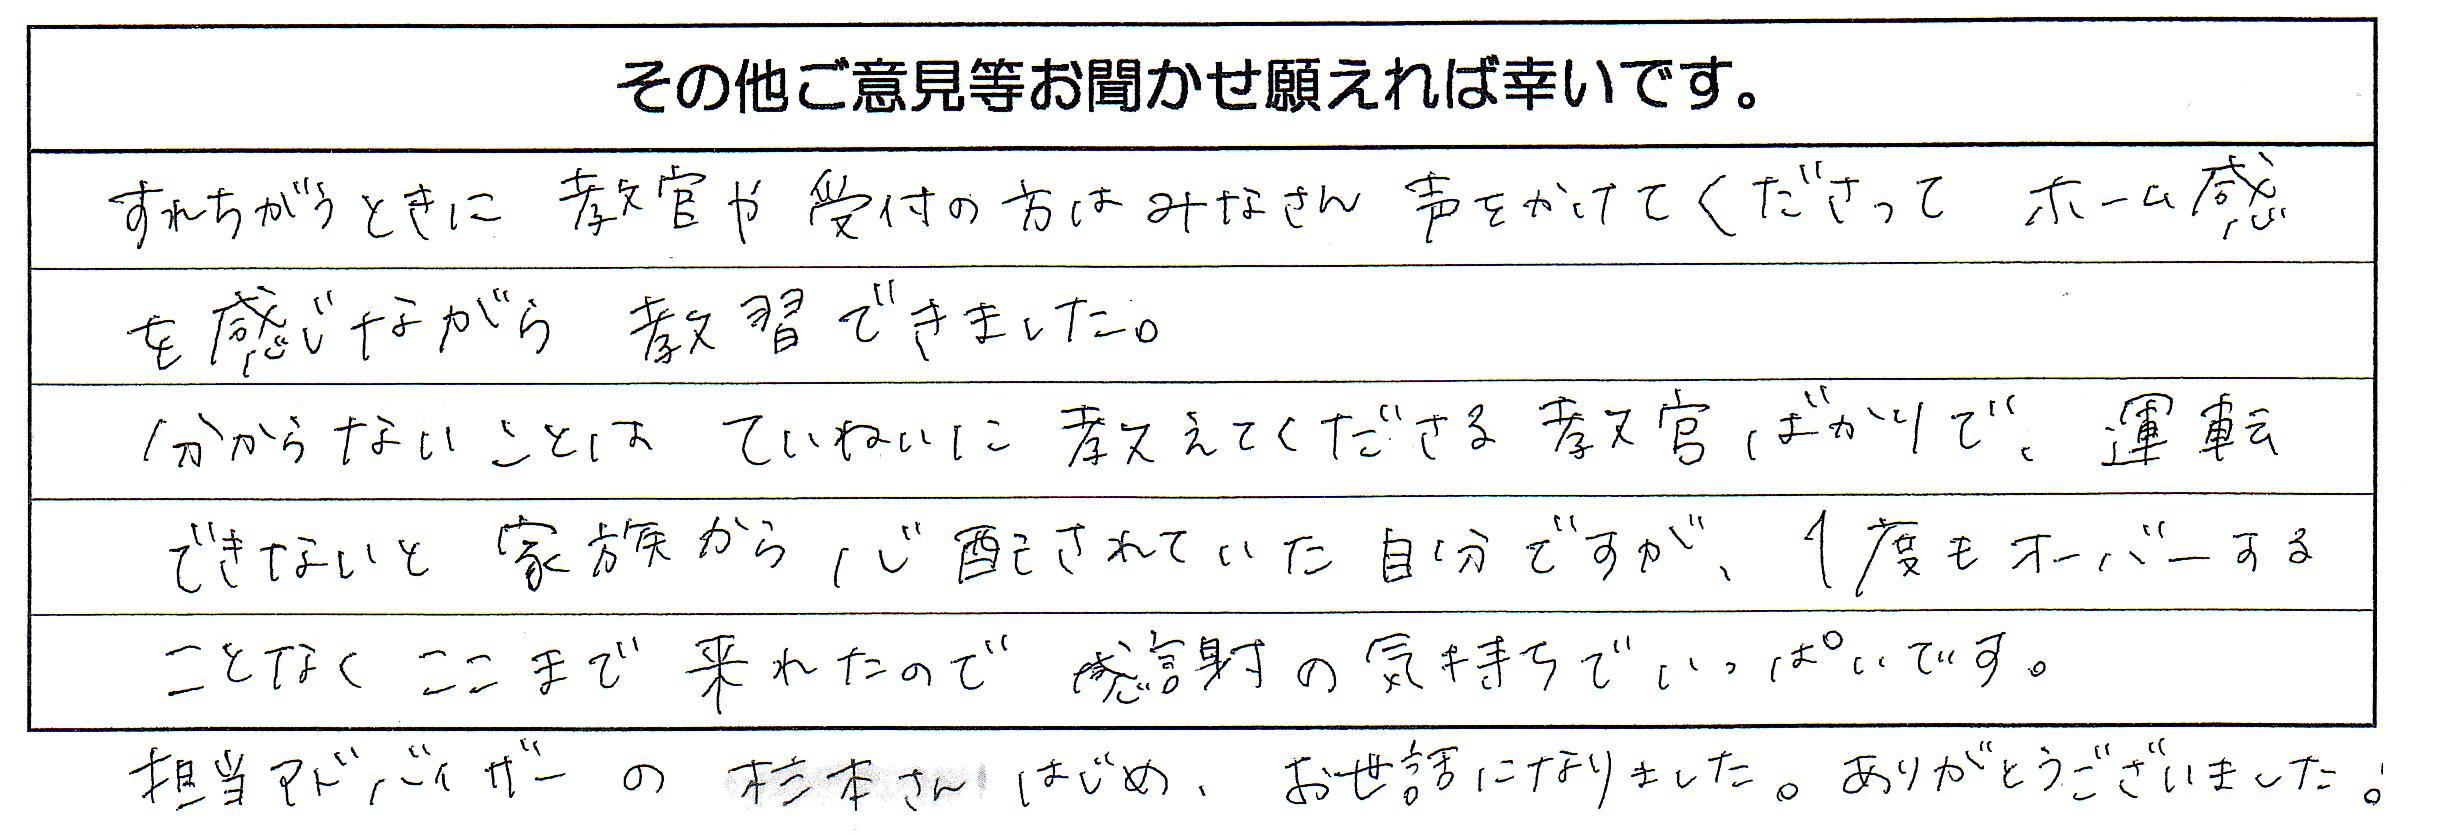 その他ご意見等お聞かせ願えれば幸いです。
すれちがうときに 教官や 受付の方はみなさん 声をかけてくださって ホーム感
を感じながら 教習できました。
分からないことは ていねいに 教えてくださる 教官ばかりで、運転
できないと 家族から心配されていた自分ですが、1度もオーバーする
ことなく ここまで 来れたので 感謝の気持ちでいっぱいです。
担当アドバイザーの 杉本さんはじめ、お世話になりました。ありがとうございました。